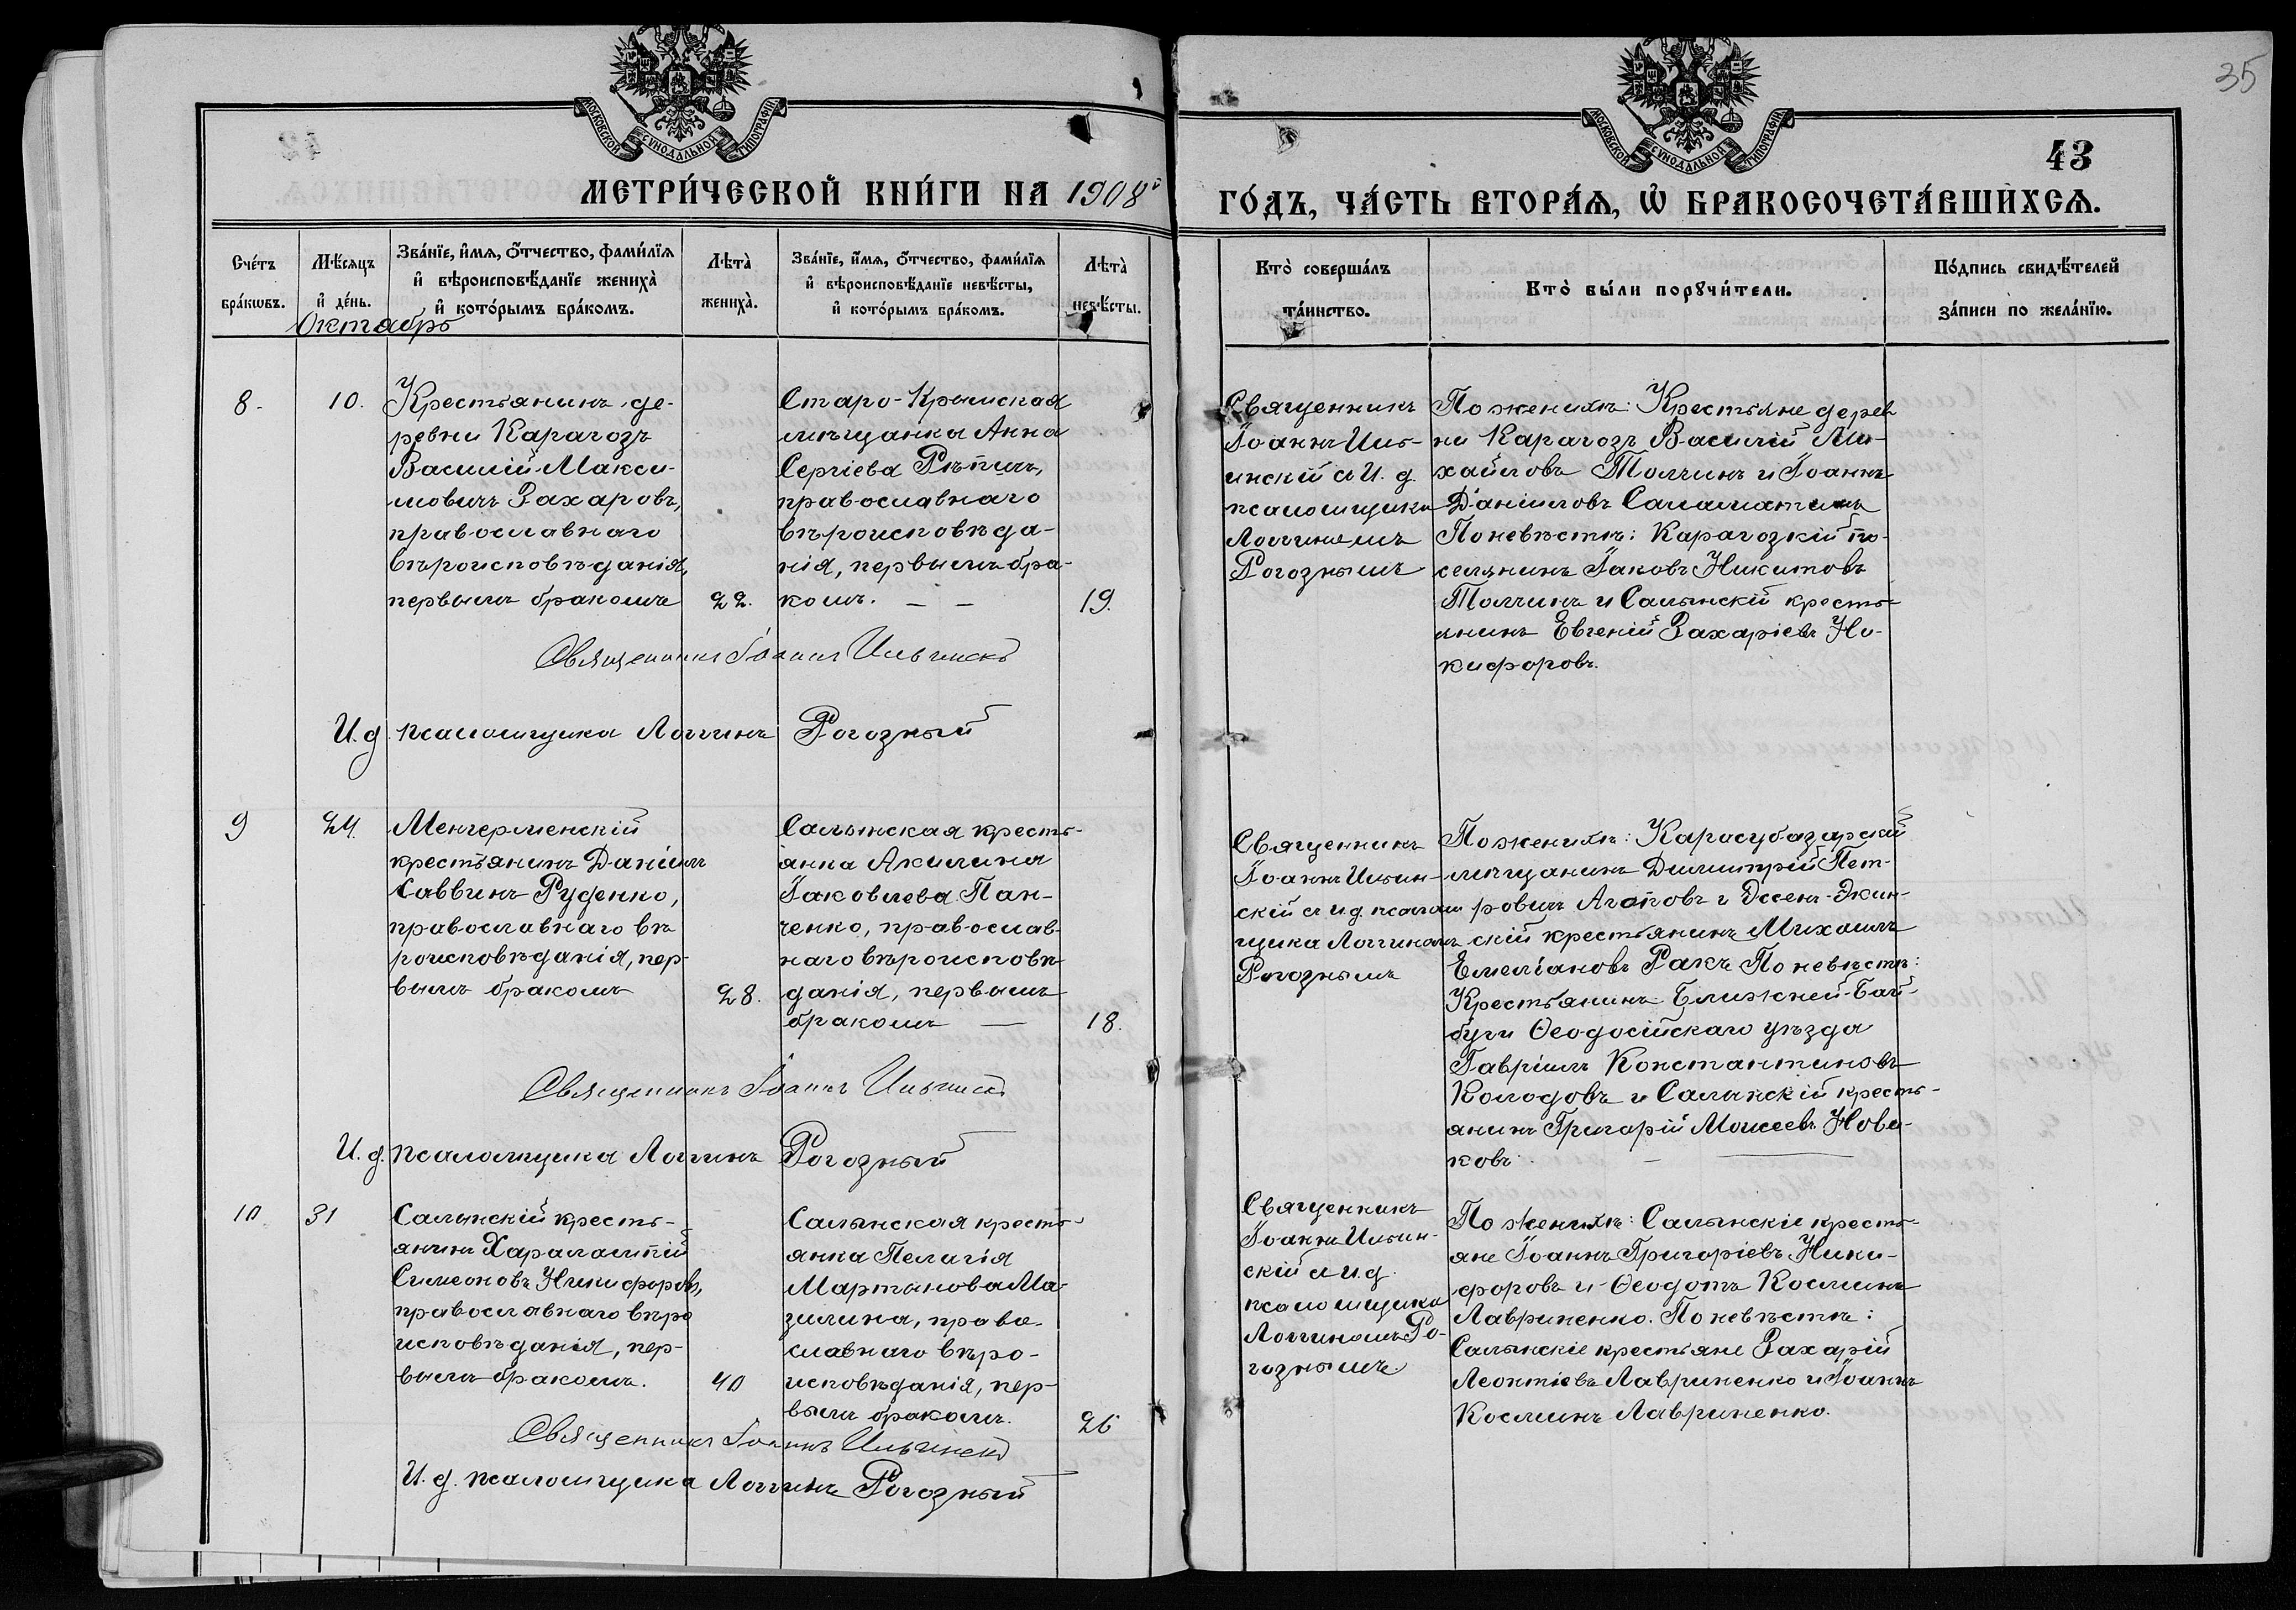 35
43
МОСКОВСКОЙ СѴНОДАЛЬНОЙ ТИПОГРАФІИ
МОСКОВСКОЙ СѴНОДАЛЬНОЙ ТИПОГРАФІИ
МЕТРИ́ЧЕСКОЙ КНИ́ГИ НА 1908й
ГО́ДЪ, ЧА́СТЬ ВТОРА́Ѧ, Ѡ҆ БРАКОСОЧЕТА́ВШИХСѦ.
Сче́тъ бра́кѡвъ.
Мѣ́сѧцъ и҆ де́нь.
Зва́нїе, и҆́мѧ, ѻ҆́тчество, фами́лїѧ
и҆ вѣроисповѣ́данїе жениха̀
и҆ кото́рымъ бра́комъ.
Лѣта̀ жениха̀.
Зва́нїе, и҆́мѧ, ѻ҆́тчество, фами́лїѧ
и҆ вѣроисповѣ́данїе невѣ́сты,
и҆ кото́рымъ бра́комъ.
Лѣта̀ невѣ́сты.
Кто̀ соверша́лъ
та́инство.
Кто̀ бы́ли порꙋчи́тели.
По́дпись свидѣ́телей
за́писи по жела́нїю.
Октябрь
8.
10.
Крестьянинъ де-
ревни Карагозъ
Василій Макси-
мовичъ Захаровъ,
православнаго
вѣроисповѣданія,
первымъ бракомъ
22.
Старо-Крымская
мѣщанка Анна
Сергіева Рѣпичъ,
православнаго
вѣроисповѣда-
нія, первымъ бра-
комъ. — —
19.
Священникъ
Іоаннъ Иль-
инскій и И. д.
псаломщика
Логгиномъ
Рогознымъ
По женихѣ: Крестьяне дерев
ни Карагозъ Василій Ми-
хайловъ Толчинъ и Іоаннъ
Даніиловъ Саламатинъ
По невѣстѣ: Карагозкій по-
селянинъ Іаковъ Никитовъ
Толчинъ и Салынскій кресть-
янинъ Евгеній Захаріевъ Ни-
кифоровъ.
Священникъ Іоаннъ Ильинскій
И. д. псаломщика Логгинъ Рогозный
9
24.
Менгерменскій
крестьянинъ Даніилъ
Саввинъ Руденко,
православнаго вѣ
роисповѣданія, пер-
вымъ бракомъ
28.
Салынская кресть-
янка Акилина
Іаковлева Пан-
ченко, православ-
наго вѣроисповѣ-
данія, первымъ
бракомъ —
18.
Священникъ
Іоаннъ Ильин-
скій и и.д. псалом
щика Логгиномъ
Рогознымъ
По женихѣ: Карасубазарскій
мѣщанинъ Димитрій Пет-
ровичъ Агаповъ и Джсенъ-Экин-
скій крестьянинъ Михаилъ
Емеліановъ Ракъ По невѣстѣ:
Крестьянинъ Ближней-Бай-
буги Ѳеодосійскаго уѣзда
Гавріилъ Константиновъ
Колодовъ и Салынскій кресть-
янинъ Григорій Моисеевъ Нови-
ковъ. — —
Священникъ Іоаннъ Ильинскій
И. д. псаломщика Логгинъ Рогозный
10
31
Салынскій кресть-
янинъ Харалампій
Симеоновъ Никифоровъ,
православнаго вѣро
исповѣданія, пер-
вымъ бракомъ.
40
Салынская кресть-
янка Пелагія
Мартынова Ма-
зилина, право-
славнаго вѣро-
исповѣданія, пер-
вымъ бракомъ.
26
Священникъ
Іоаннъ Ильин-
скій и и.д.
псаломщика
Логгиномъ Ро-
гознымъ
По женихѣ: Салынскіе кресть-
яне Іоаннъ Григоріевъ Ники-
форовъ и Ѳеодотъ Косминъ
Лавриненко. По невѣстѣ:
Салынскіе крестьяне Захарій
Леонтіевъ Лавриненко и Іоаннъ
Косминъ Лавриненко.
Священникъ Іоаннъ Ильинскій
И. д. псаломщика Логгинъ Рогозный